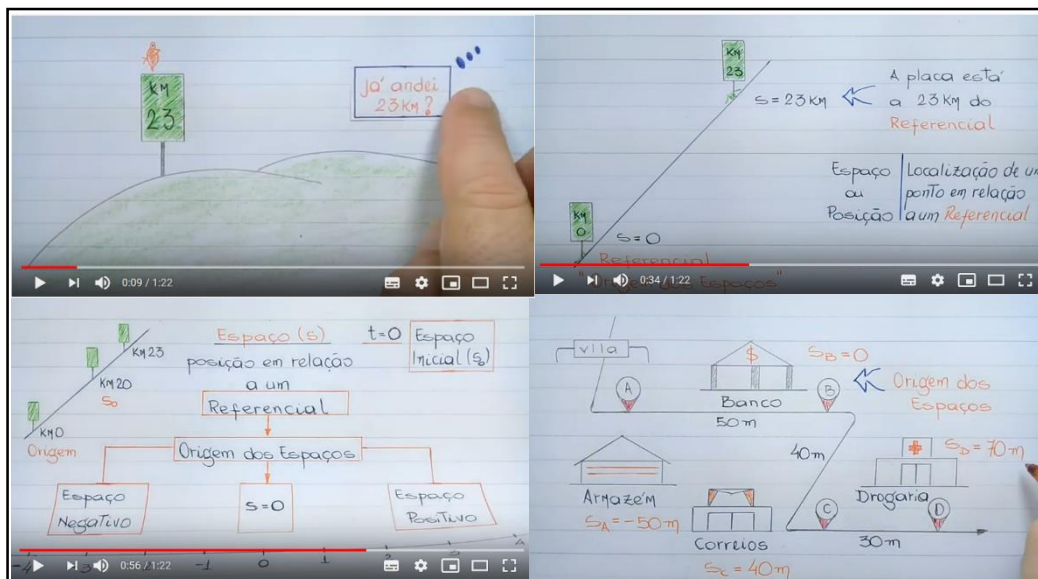 KM
23
Já andei
23 KM?
0:09 / 1:22
KM
23
S = 23 KM
A placa está
a 23 KM do
Referencial
Espaço
ou
Posição
Localização de um
ponto em relação
a um Referencial
KM
0
S = 0
Referencial
"Origem dos Espaços"
0:34 / 1:22
KM 23
KM 20
S₀
KM 0
Origem
Espaço (s)
posição em relação
a um
Referencial
t = 0
Espaço
Inicial (S₀)
Origem dos Espaços
Espaço
Negativo
S = 0
Espaço
Positivo
-1
0
2
0:56 / 1:22
vila
A
$
Banco
B
S_B = 0
Origem dos
Espaços
50 m
40 m
Armazém
S_A = -50 m
Correios
S_C = 40 m
Drogaria
S_D = 70 m
C
D
30 m